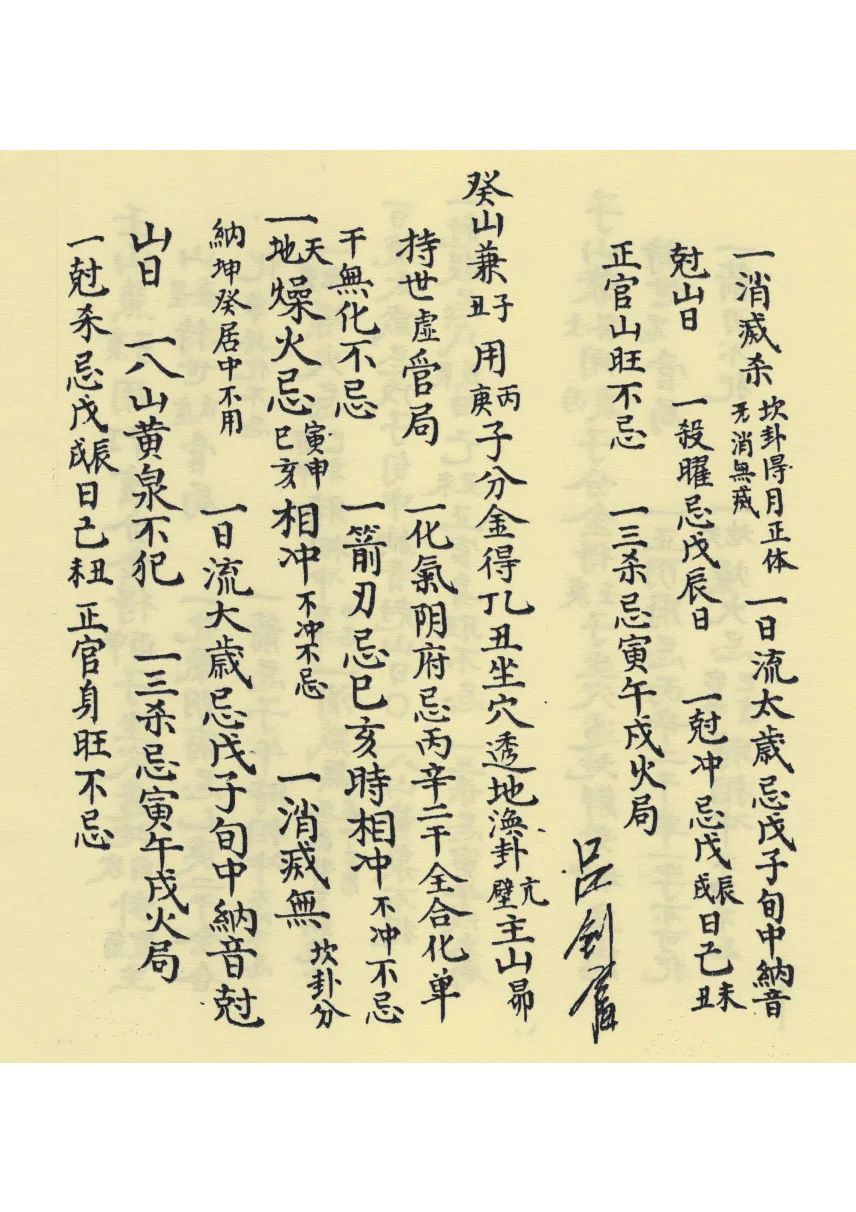 一消滅杀坎卦得月正体无消無滅 一日流太歳忌戊子旬中納音
尅山日 一殺曜忌戊辰日 一尅冲忌戊辰戌日己未丑
正官山旺不忌 一三杀忌寅午戌火局
癸山兼子丑用丙庚子分金得丁丑坐穴透地渙卦亢壁主山昴
持世虚管局 一化氣阴府忌丙辛二干全合化单
干無化不忌 一箭刃忌巳亥時相冲不冲不忌
一天地燥火忌寅申巳亥相冲不冲不忌 一消滅無坎卦分
納坤癸居中不用 一日流大歳忌戊子旬中納音尅
山日 一八山黄泉不犯 一三杀忌寅午戌火局
一尅杀忌戊辰戌日己丑未正官身旺不忌